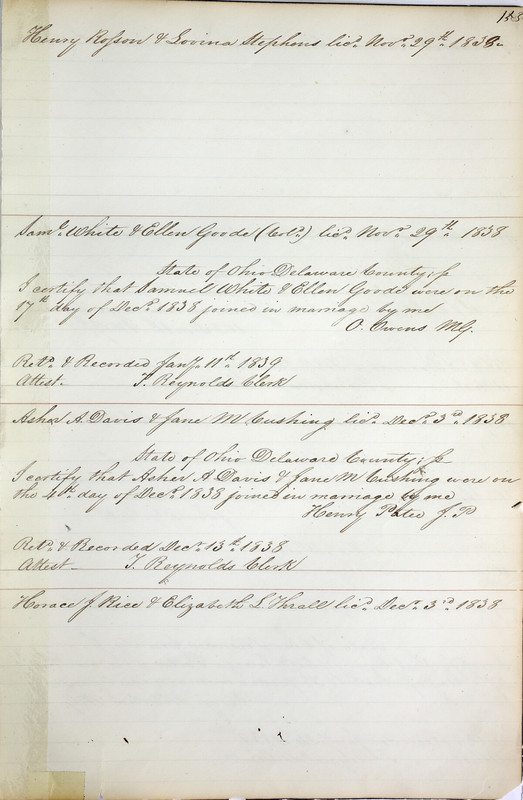 158
Henry Rosson & Lovina Stephens licd. Novr. 29th 1838
Saml. White & Ellen Goode (Cold.) licd. Novr. 29th 1838
State of Ohio Delaware County; ss
I certify that Samuel White & Ellen Goode were on the
17th day of Decr. 1838 joined in marriage by me
O. Owens MG.
Retd. & Recorded Jany. 11th 1839
Attest- T. Reynolds Clerk
Asher A. Davis & Jane M Cushing licd. Decr. 3rd 1838
State of Ohio Delaware County; ss
I certify that Asher A Davis & Jane M Cushing were on
the 4th day of Decr. 1838 joined in marriage by me
Henry J. P
Retd. & Recorded Decr. 13th 1838
Attest- T. Reynolds Clerk
Horace J. Rice & Elizabeth L. Thrall licd. Decr. 3rd 1838